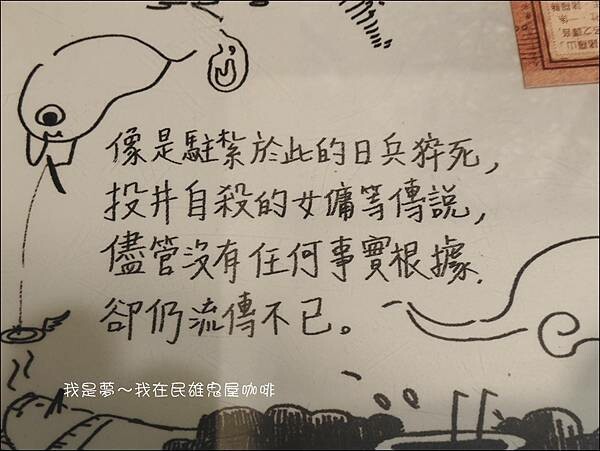 像是駐紮於此的日兵猝死，
投井自殺的女傭等傳說，
儘管沒有任何事實根據.
卻仍流傳不已。
我是夢～我在民雄鬼屋咖啡